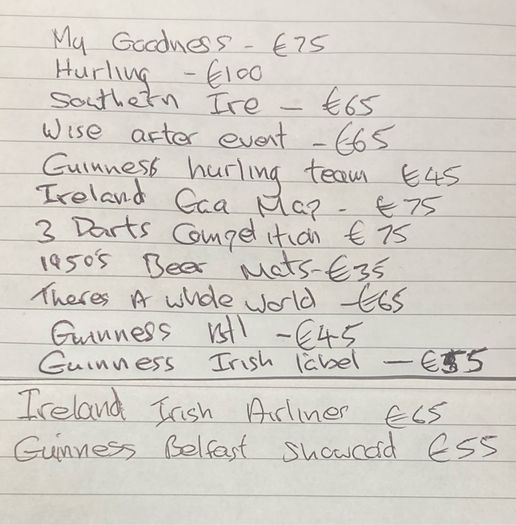 My Goodness - €75
Hurling - €100
Southern Ire - €65
Wise after event - €65
Guinness hurling team €45
Ireland Gaa Map - €75
3 Darts Competition €75
1950's Beer Mats - €35
Theres A whole world - €65
Guinness Btl - €45
Guinness Irish label - €55
Ireland Irish Airlines €65
Guinness Belfast Showcard €55